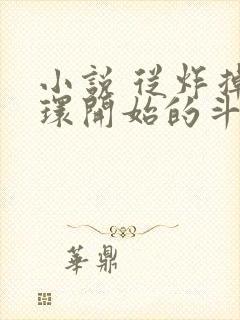 小說 從炸掉
環開始的斗
華鼎